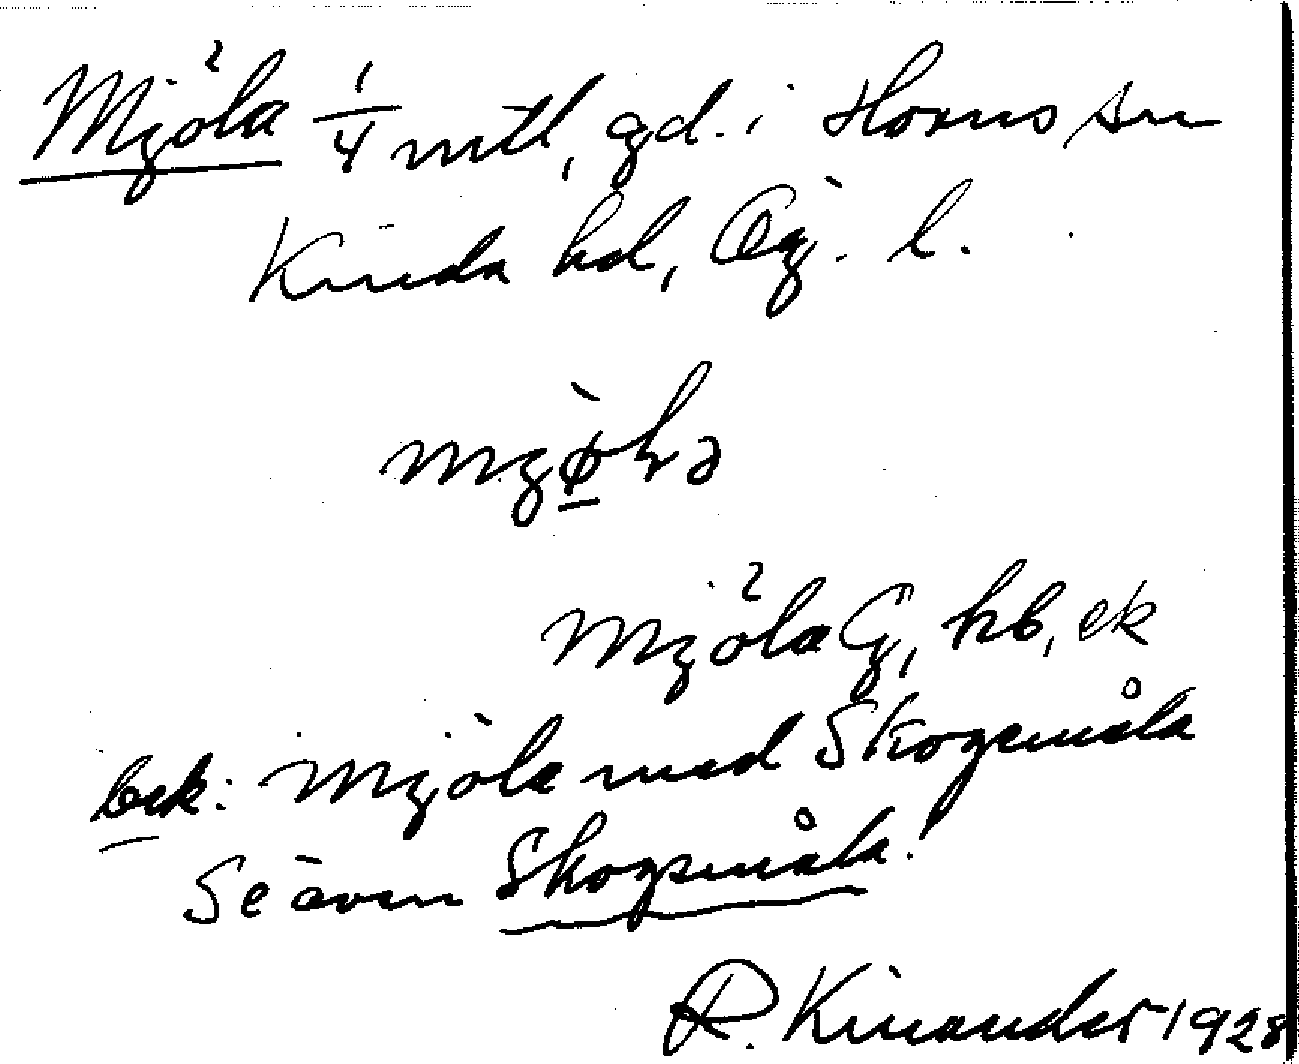 Mjöla 1/4 mtl, gd. i Horns sn
Kinda hd, Ög. l.
Mjöla G, hb, ek
bek: Mjöla med Skogsmåla
Se även Skogsmåla!
R. Kinander 1928